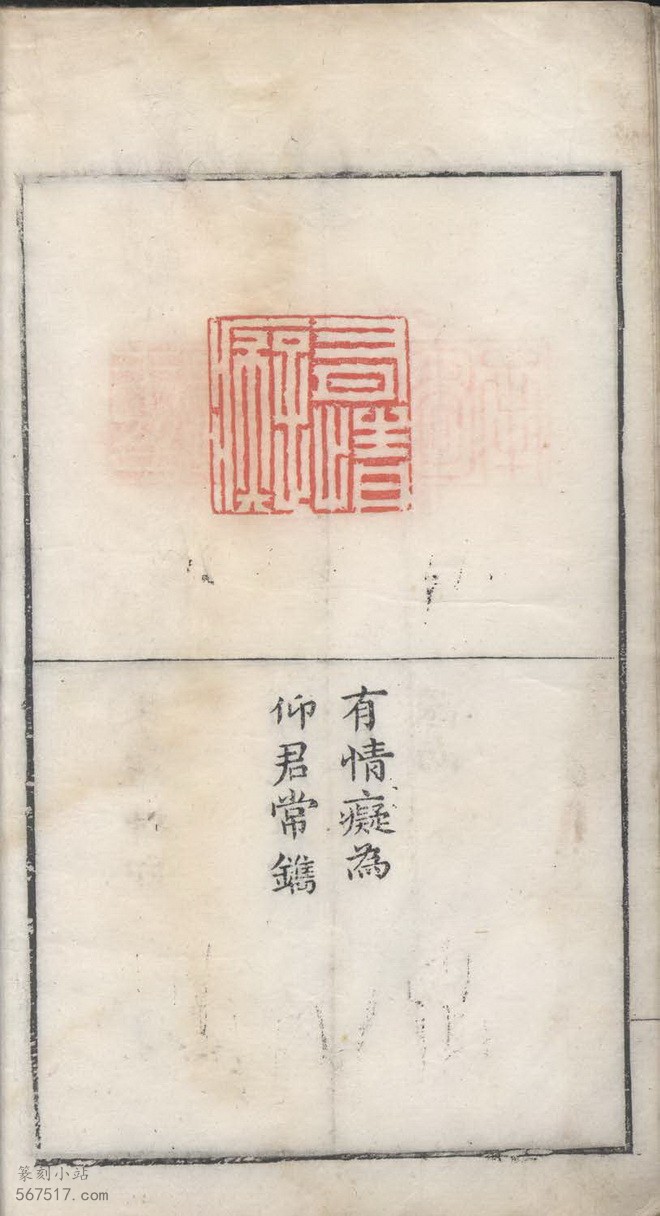 有情癡
有情癡為
仰君常鐫
篆刻小站
567517.com